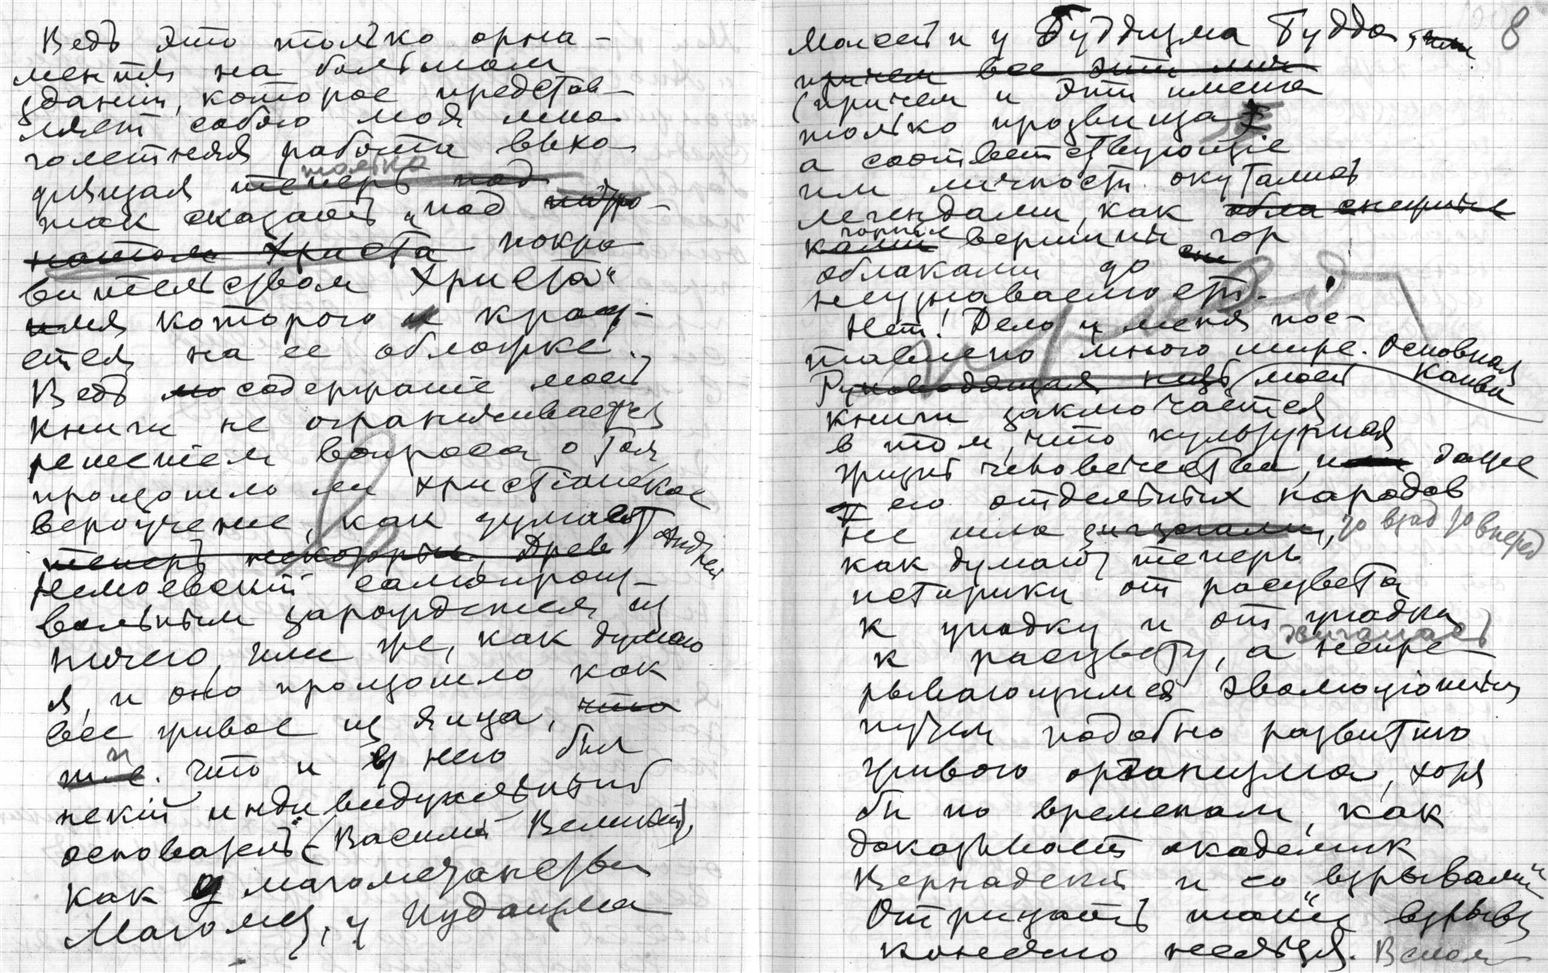 Ведь это только орна-
менты на большом
зданіи, которое представ-
ляетъ собою моя мно-
голетняя работа выхо-
дящая только
такъ сказать „под
покро-
вительством Христа“
имя которого и красу-
ется на ее обложке.
Ведь содержаніе моей
книги не ограничивается
решеніем вопроса о том
произошло ли христіанское
вероученіе, как думает
Андрей
Немоевский самопроиз-
вольным зарожденіем из
ничего, или же, как думаю
я, и оно произошло как
все живое из яйца,
т.е. что и у него был
некій индивидуальный
основатель (Василий Великий),
как у магометанства
Магомет, у Иудаизма
8
Моисей и у Буддизма Будда,
причем все эти
(причем и эти имена
только прозвища,
а соответствующіе
им личности окутались
легендами, как
горные вершины
облаками до
неузнаваемости.
Нет! Дело у меня пос-
тавлено много шире. Основная
канва
Руководящая нить моей
книги заключается
в том, что культурная
жизнь человечества, и даже
его отдельных народов
не шла зигзагами, то взад то вперед
как думают теперь
историки от расцвета
к упадку и от упадка
к расцвету, а непре-
рывающимся эволюціонным
путем подобно развитию
живого организма, хотя
бы по временам, как
доказывает академик
Вернадскій и со „взрывами“
Отрицать такие взрывы
конечно нельзя.